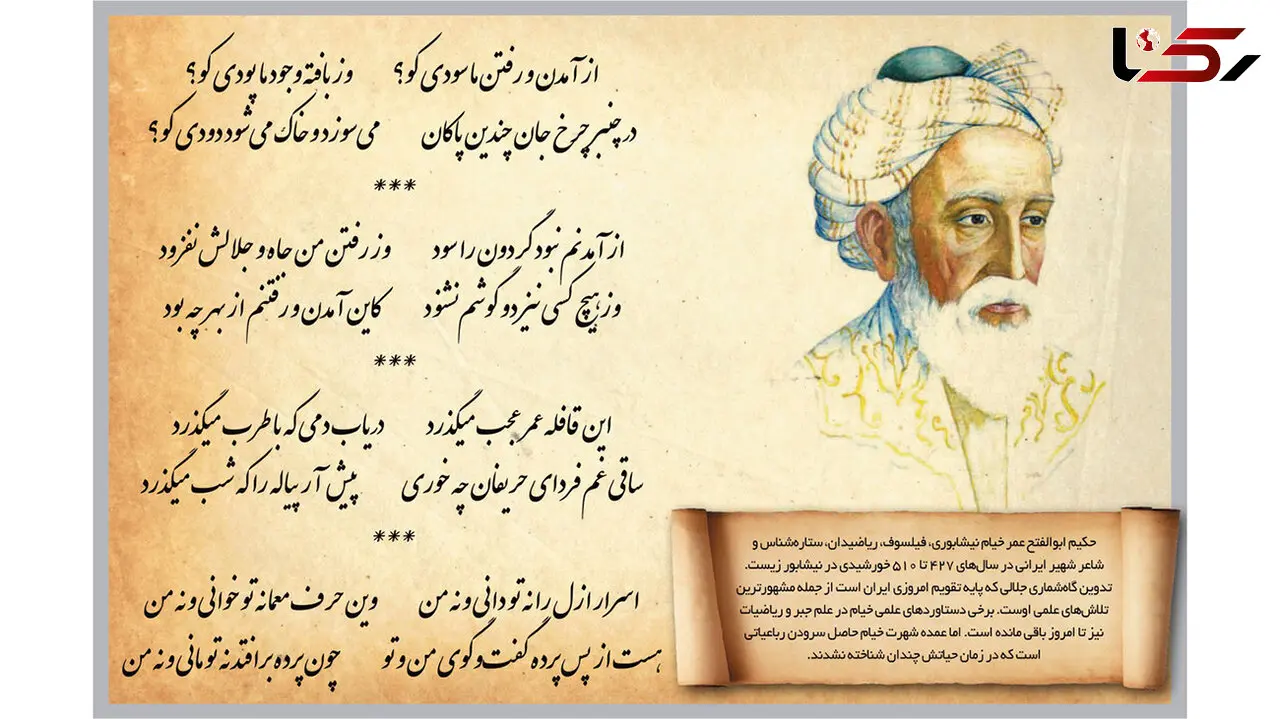 رکنا
از آمدن و رفتن ما سودی کو؟ وز بافته وجود ما پودی کو؟
در چنبر چرخ جان چندین پاکان می سوزد و خاک می شود دودی کو؟
***
از آمدنم نبود گردون را سود وز رفتن من جاه و جلالش نفزود
وز هیچ کسی نیز دو گوشم نشنود کاین آمدن و رفتنم از بهر چه بود
***
این قافله عمر عجب میگذرد دریاب دمی که با طرب میگذرد
ساقی غم فردای حریفان چه خوری پیش آر پیاله را که شب میگذرد
***
اسرار ازل را نه تو دانی و نه من وین حرف معما نه تو خوانی و نه من
هست از پس پرده گفت و گوی من و تو چون پرده برافتد نه تو مانی و نه من
حکیم ابوالفتح عمر خیام نیشابوری، فیلسوف، ریاضیدان، ستاره‌شناس و
شاعر شهیر ایرانی در سال‌های ۴۲۷ تا ۵۱۰ خورشیدی در نیشابور زیست.
تدوین گاه‌شماری جلالی که پایه تقویم امروزی ایران است از جمله مشهورترین
تلاش‌های علمی اوست. برخی دستاوردهای علمی خیام در علم جبر و ریاضیات
نیز تا امروز باقی مانده است. اما عمده شهرت خیام حاصل سرودن رباعیاتی
است که در زمان حیاتش چندان شناخته نشدند.